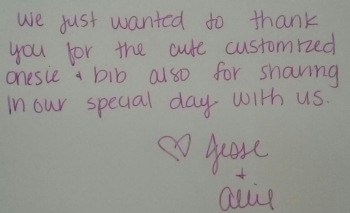 We just wanted to thank
you for the cute customized
onesie & bib also for sharing
in our special day with us.
♡ Jesse
+
allie